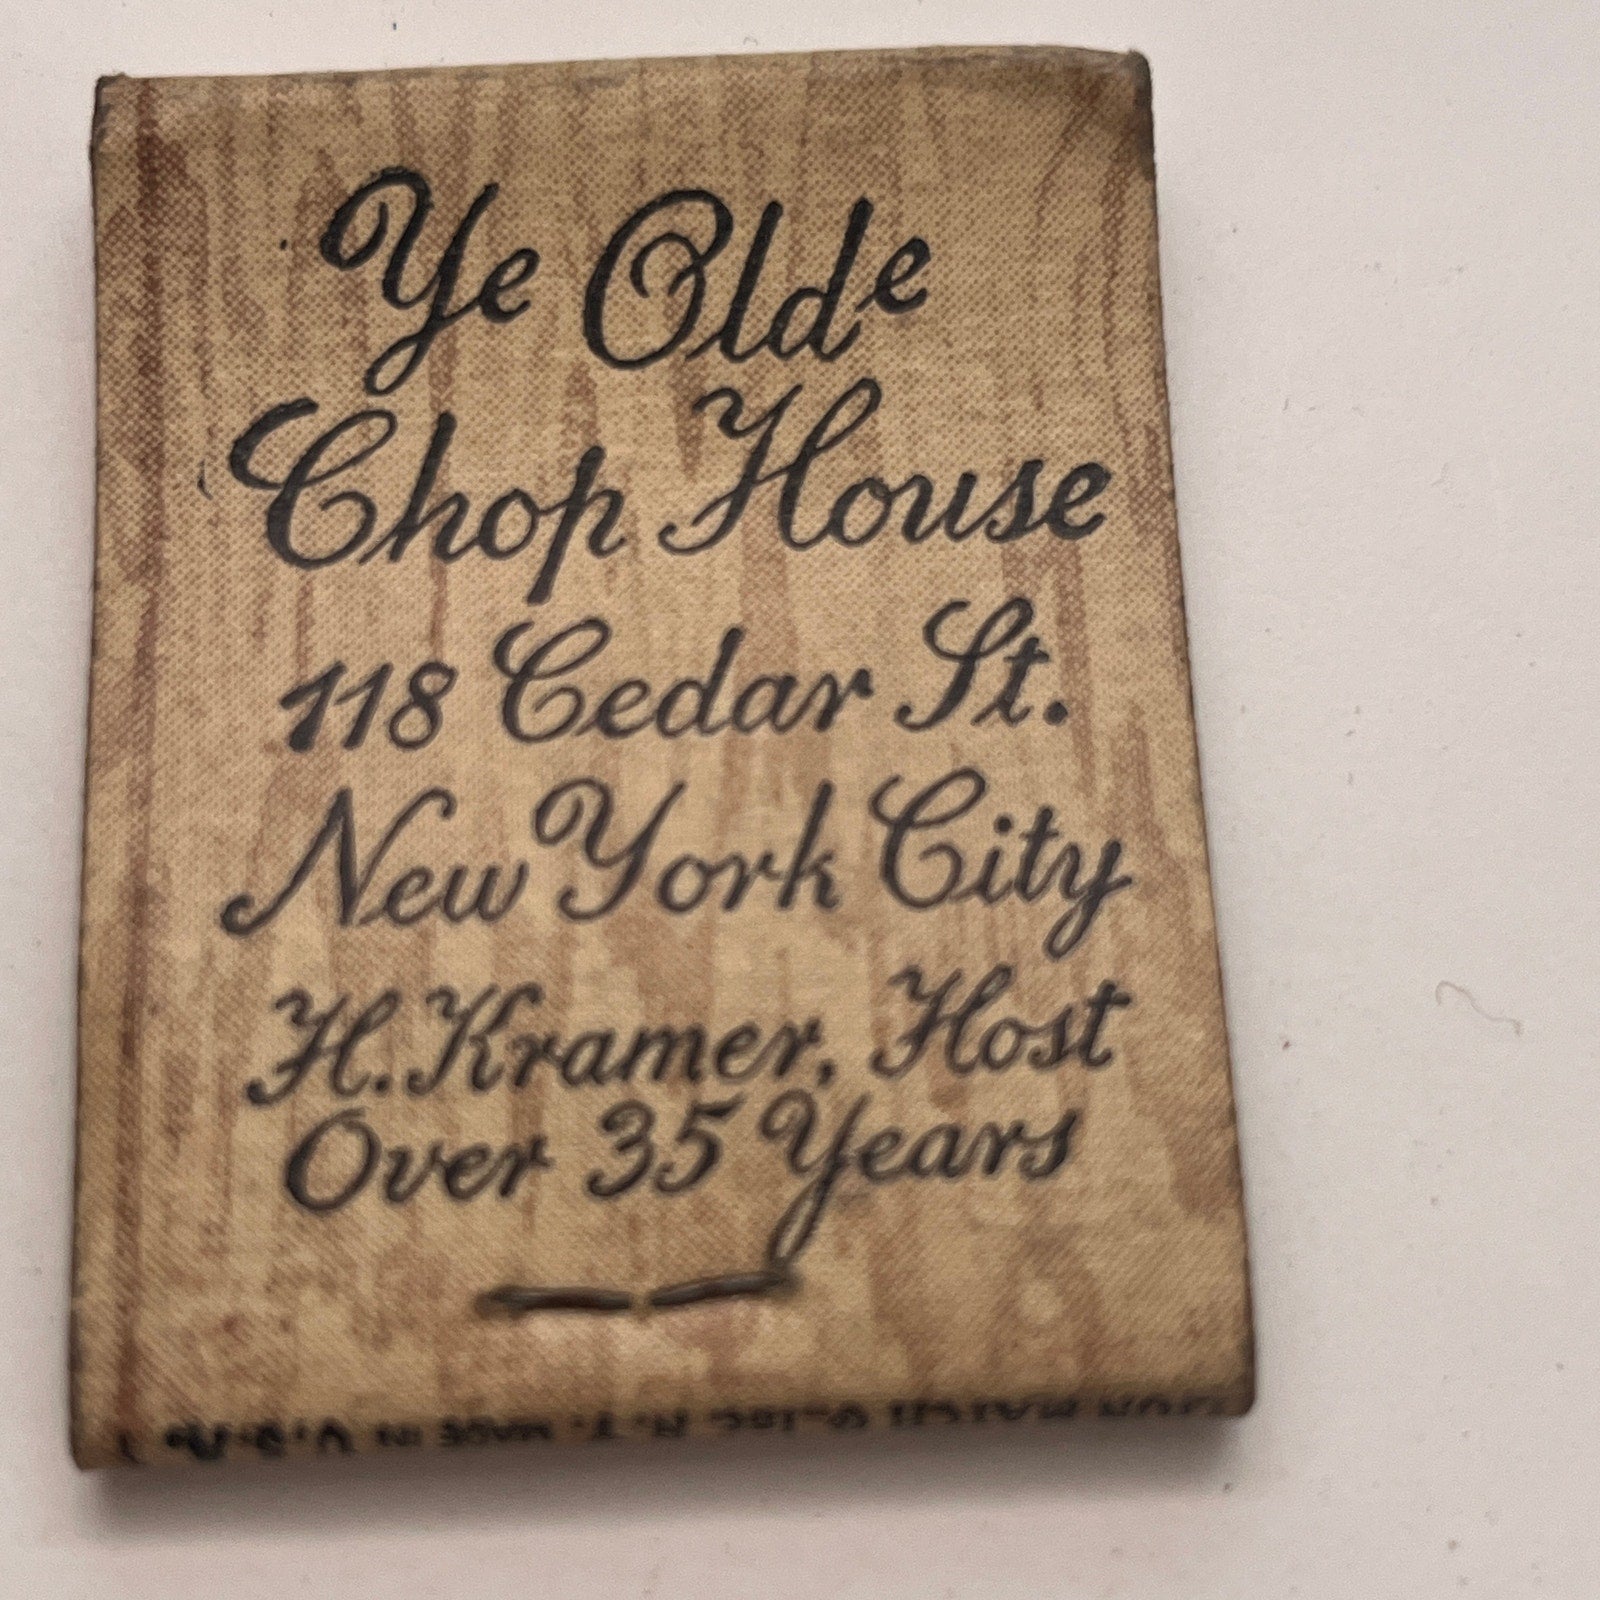 Ye Olde
Chop House
118 Cedar St.
New York City
H. Kramer, Host
Over 35 Years
MATCH C., INC. N.Y. MADE IN U.S.A.